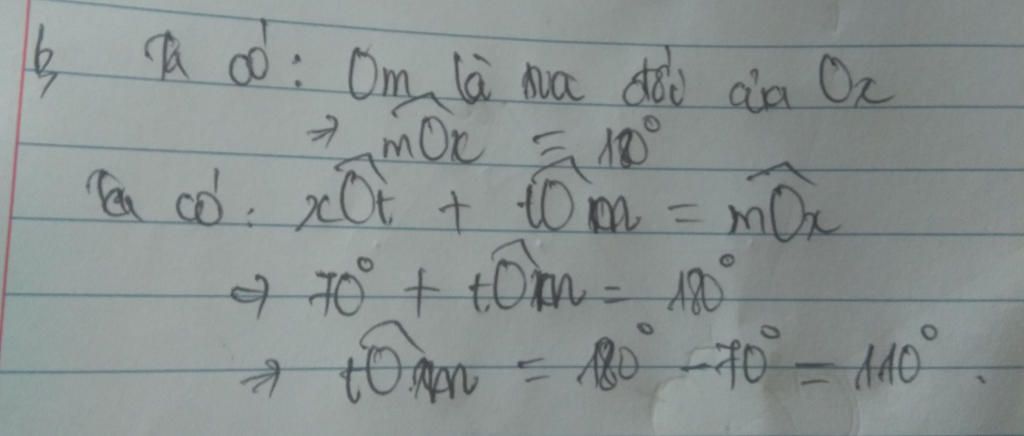 b, Ta có: Om là tia đối của Ox
⇒ mÔx = 180°
Ta có: xÔt + tÔm = mÔx
⇒ 70° + tÔm = 180°
⇒ tÔm = 180° - 70° = 110°.